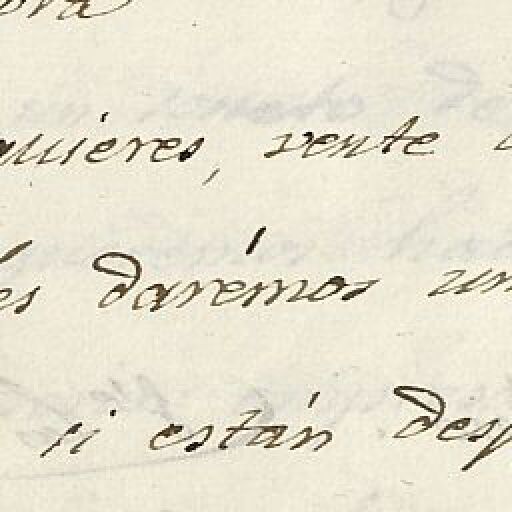 quieres, vente
les darémos un
si están desp